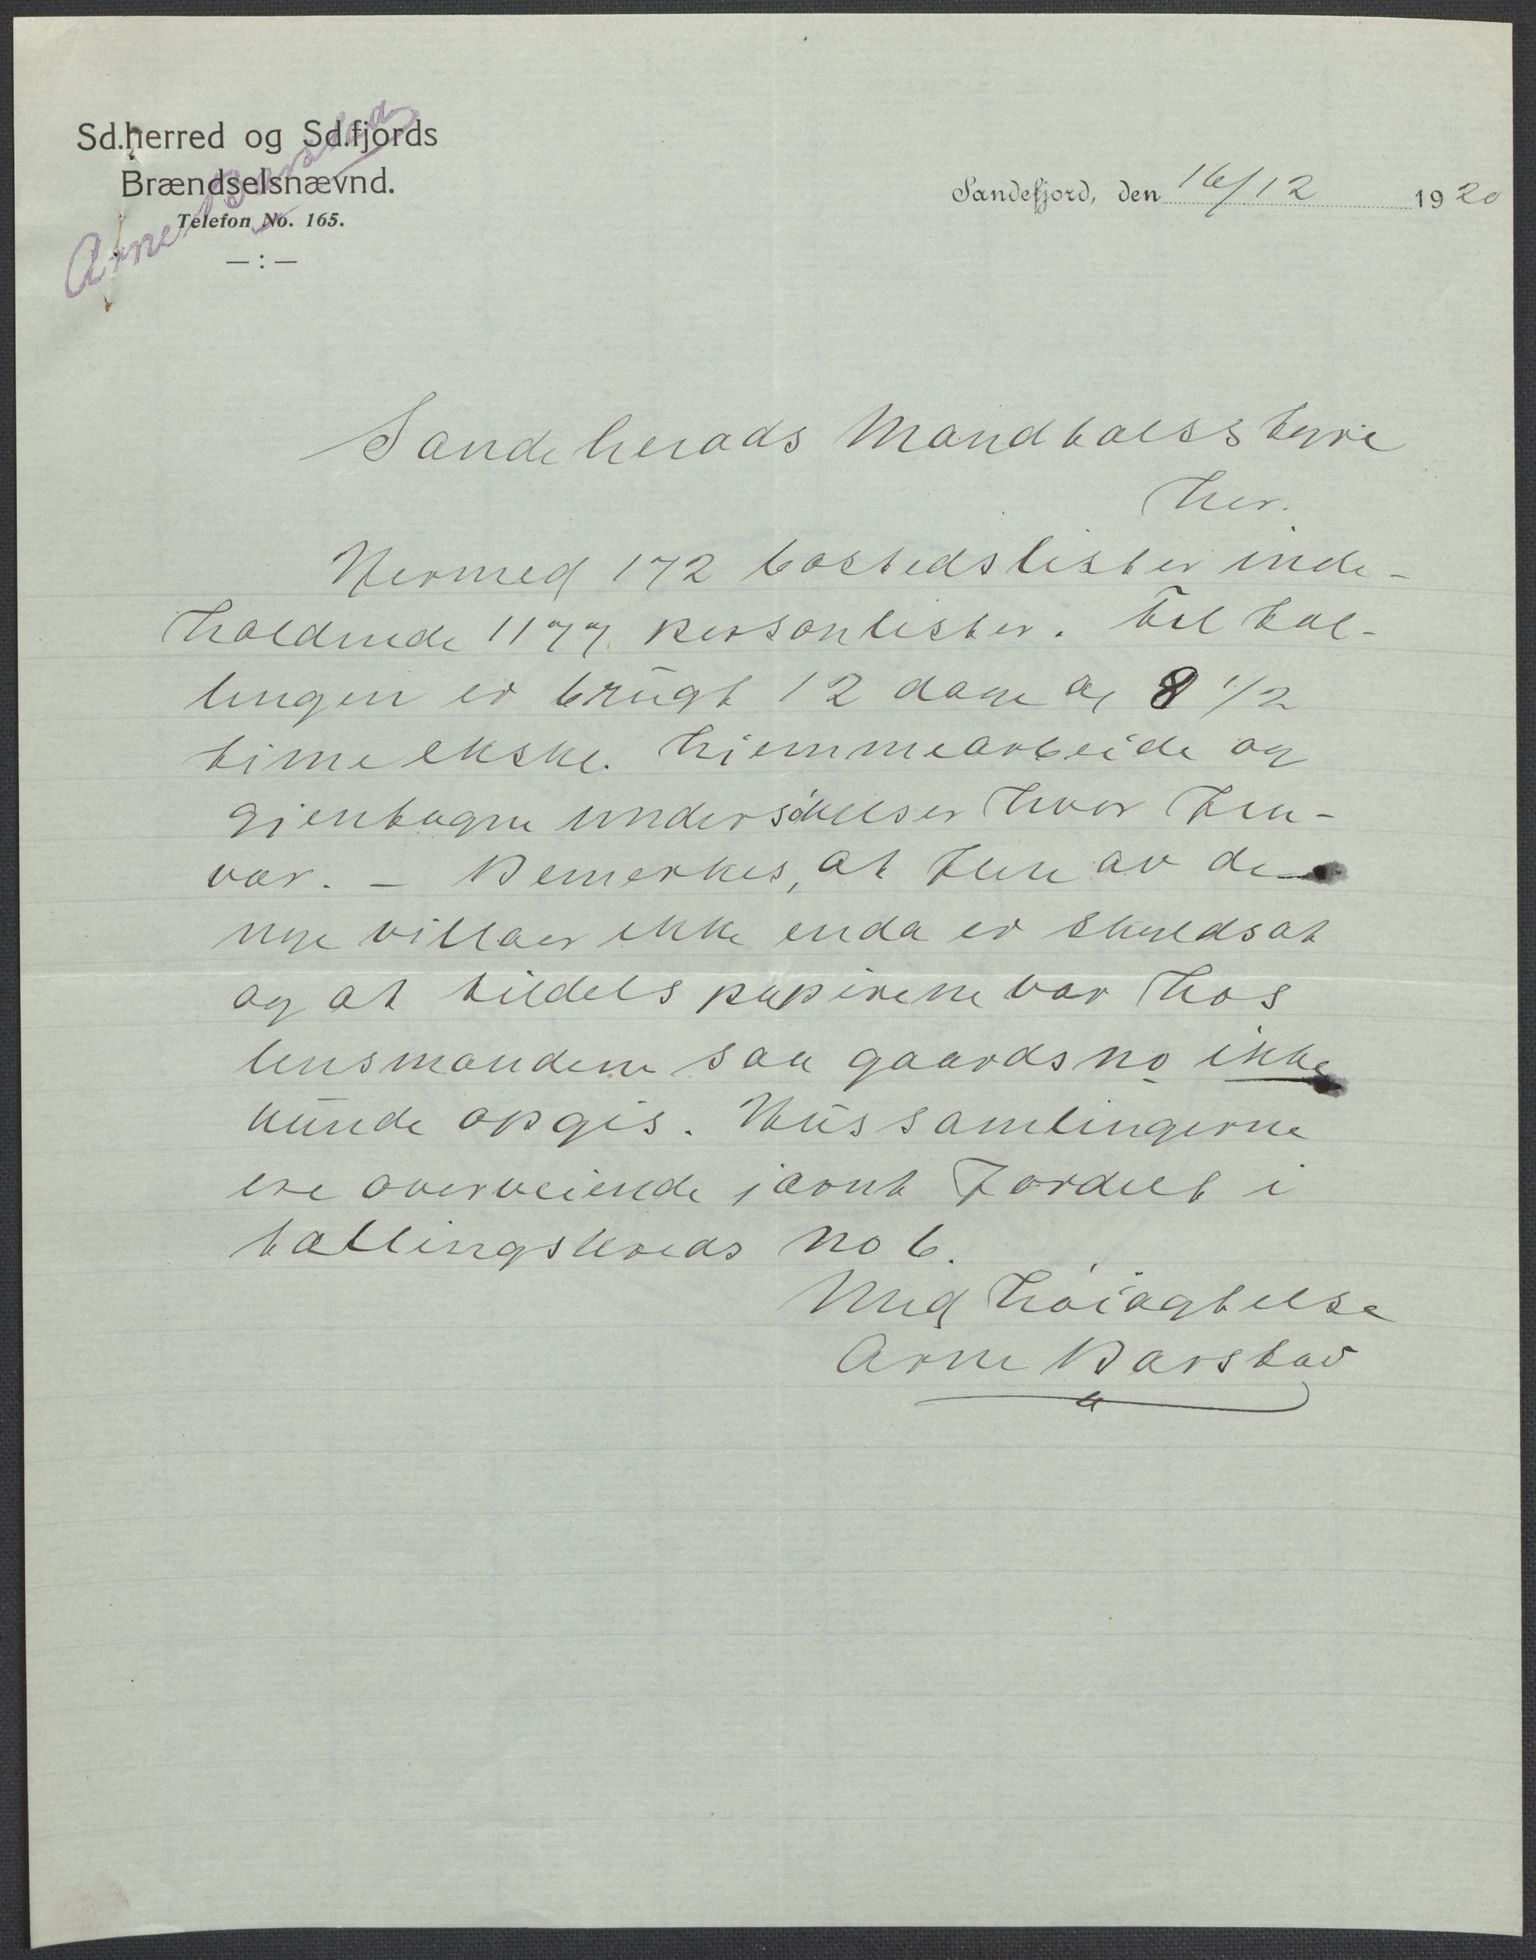 Sd.herred og Sd.fjords
Brændselsnævnd.
Telefon No. 165.
— : —
Arne Barstad
Sandefjord, den 16/12 1920
Sandeherads Mandtalsstyre
her.
Hermed 172 bostedslister inde-
holdende 1177 personlister. Til tæl-
lingen er brugt 12 dage og 8 1/2
time ekskl. hjemmearbeide og
gjentagne undersökelser hvor feil
var. — Bemerkes, at flere av de
nye villaer ikke enda er skyldsat
og at tildels papirene var hos
lensmanden saa gaardsno ikke
kunde opgis. Hussamlingerne
ere overveiende jævnt fordelt i
tællingskreds no 6.
Med höiagtelse
Arne Barstad